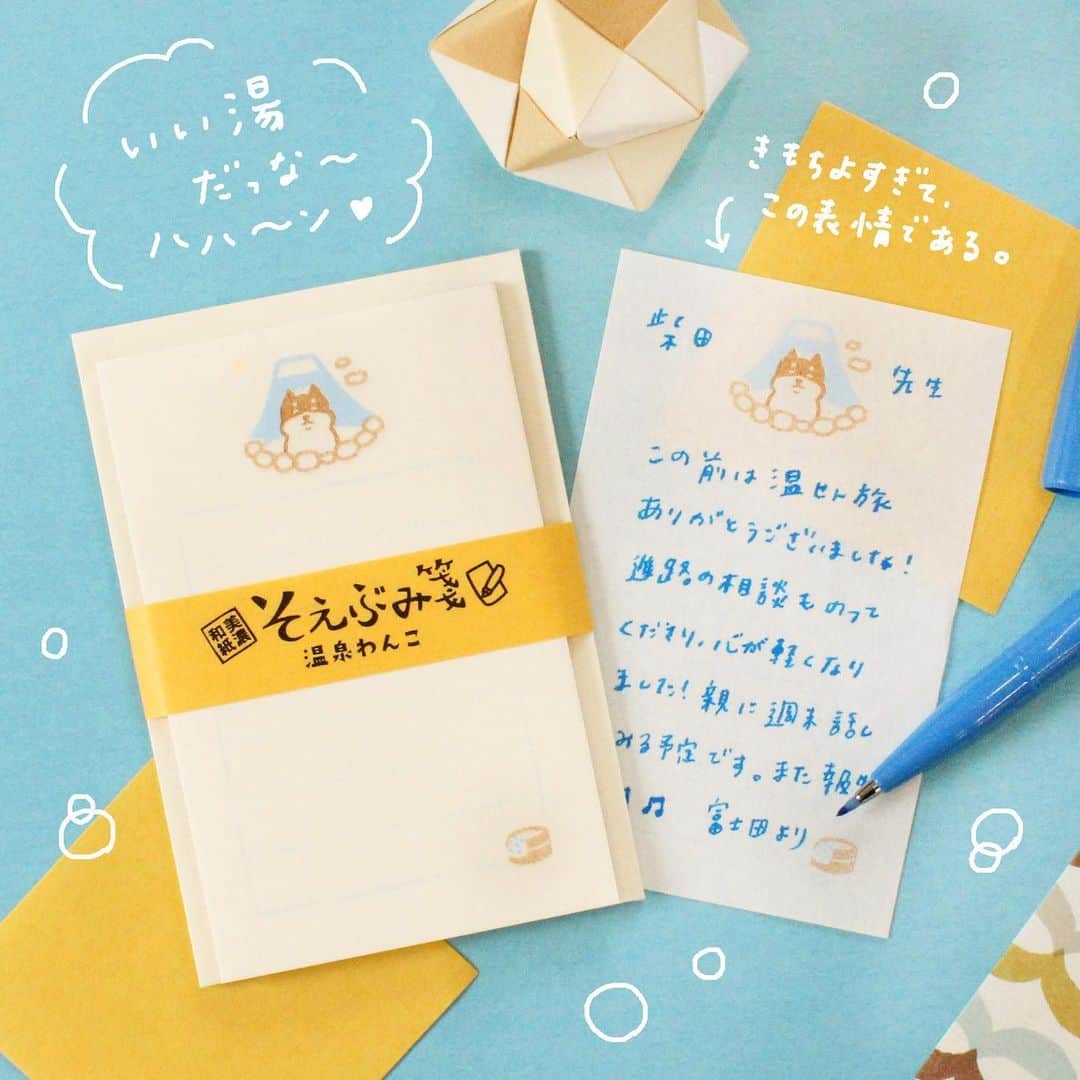 いい湯
だっな～
ハハ～ン♥
きもちよすぎて、
この表情である。
柴田
先生
この前は温せん旅
ありがとうございました!
進路の相談ものって
くださり、心が軽くなり
ました!親に週末話し
みる予定です。また報
♫ 富士田より
美濃
和紙
そえぶみ箋
温泉わんこ